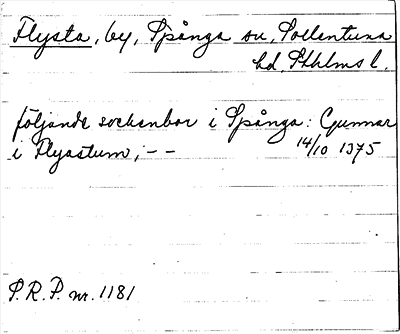 Flysta, by, Spånga sn, Sollentuna
hd, Sthlms l.
följande sockenbor i Spånga: Gunnar
i Flyastum; - -
14/10 1375
S.R.P. nr. 1181